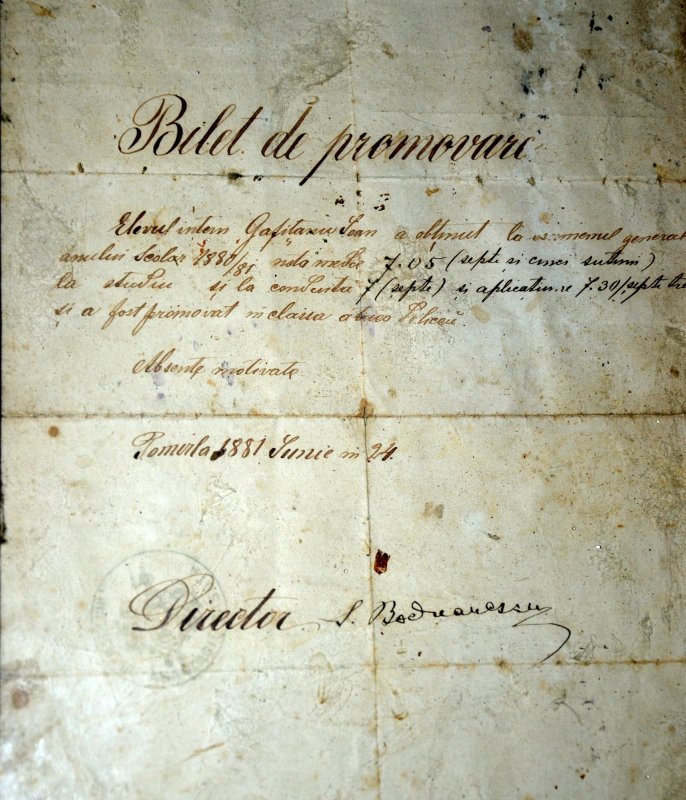 Bilet de promovare
Elevul intern Gafitanu Ioan a obținut la esamenul general
anului Scolar 1880/81 nota medie 7.05 (septe si cinci sutimi)
la studiu și la conduita 7 (septe) și aplicatiune 7.30/septe tre
si a fost promovat in clasa
Absente motivate
Pomirla 1881 Iunie in 24.
Director S. Bodnarescu